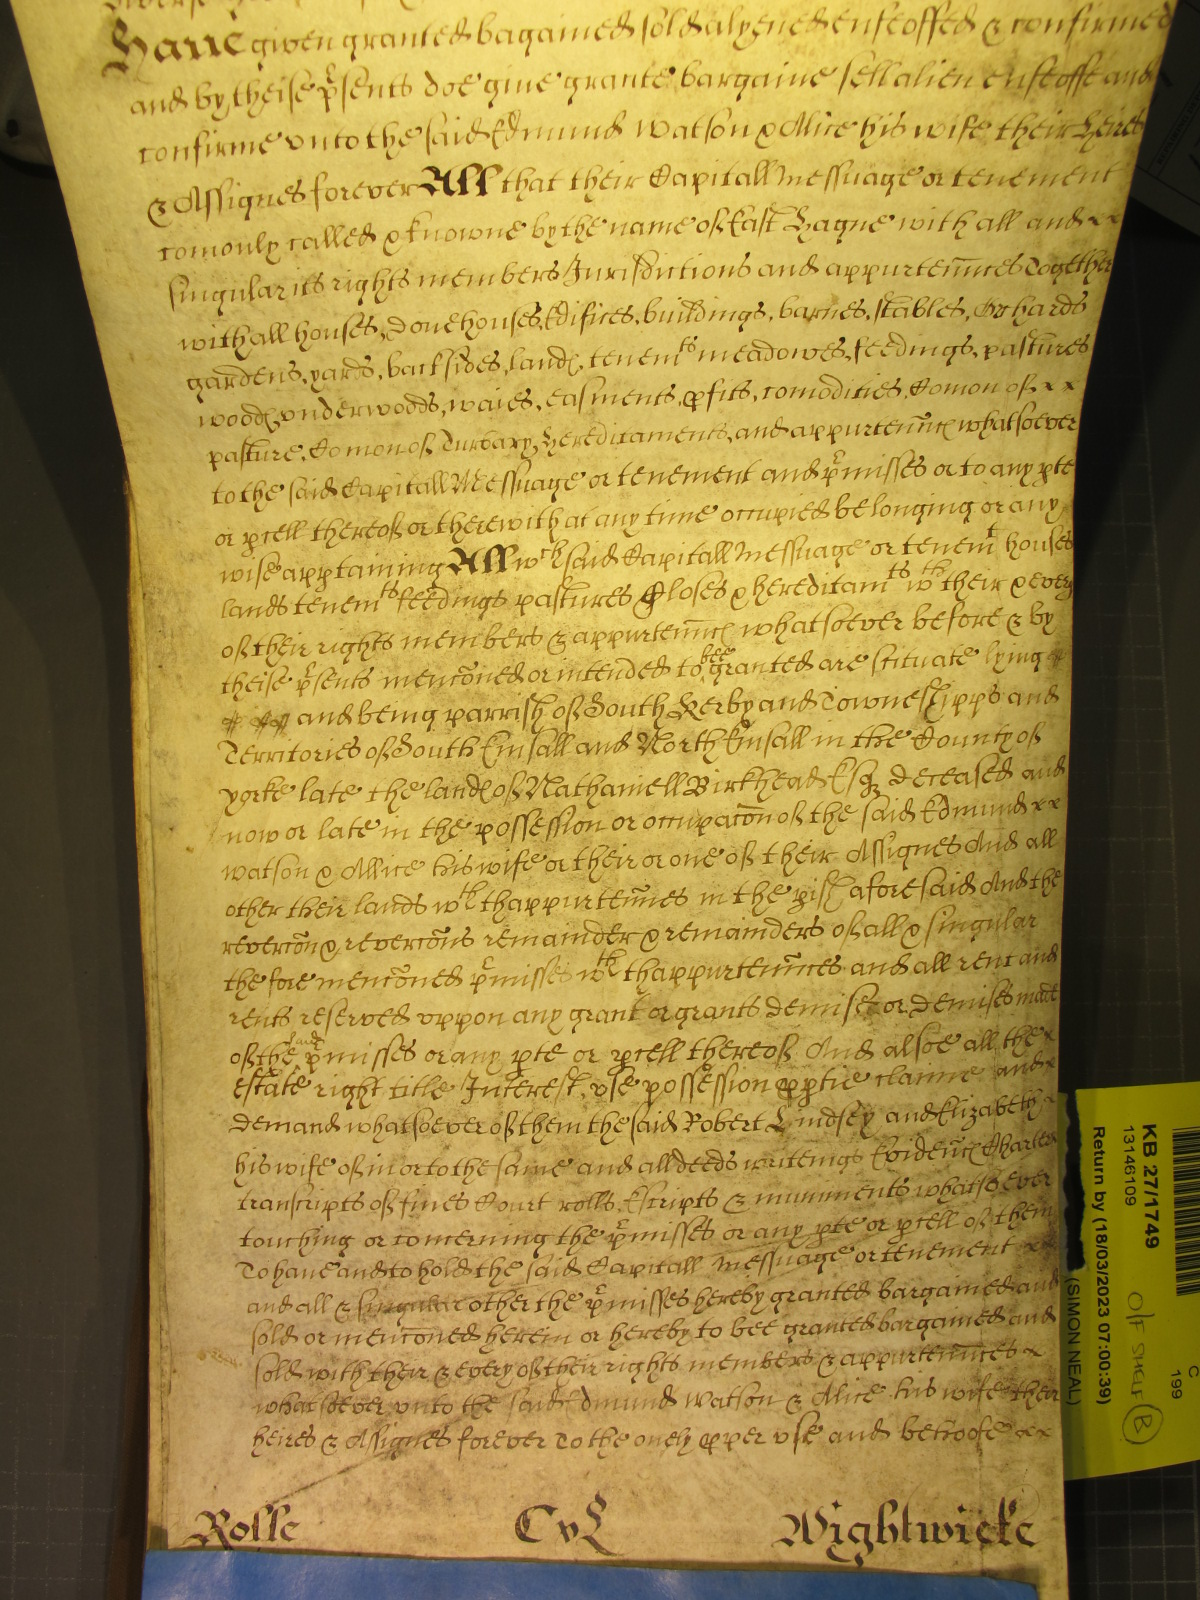 Haue given granted bagained sold alyened enfeoffed & confirmed
and by theise p̄sents doe give grante bargaine sell alien enfeoffe and
confirme vnto the said Edmund Watson & Alice his wife their heires
& Assignes forever All that their Capitall Messuage or tenement
comonly called & knowne by the name of East Hague with all and x x
singular its rights members Jurisdictions and appurten̄nces Together
with all houses, dovehouses, Edifices, buildings, barnes, stables, Orchards
gardens, yards, backsides, landℯ, tenemts meadowes, feedings, pastures
woodℯ, vnderwoods, waies, easments, ꝓfits, comodities, Comon of x x
pasture, Comon of Turbary, Hereditaments, and appurten̄ncℯ whatsoever
to the said Capitall Messuage or tenement and p̄misses or to any ꝑte
or ꝑcell thereof or therewith at any time occupied belonging or any
wise apꝑtaining All wch said Capitall Messuage or tenemt houses
lands tenemts feedings pastures Closes & hereditamts wth their & every
of their rights members & appurten̄ncℯ whatsoever before & by
theise p̄sents menc̄oned or intended to bee granted are scituate lying
and being parrish of South Kerby and Towneshipps and
Territories of South Emsall and North Emsall in the County of
yorke late the landℯ of Nathaniell Birkhead Esqꝫ deceased and
now or late in the possession or occupac̄on of the said Edmund x x
watson & Allice his wife or their or one of their Assignes And all
other their lands wth thappurten̄nces in the ꝑish aforesaid And the
reverc̄on & reverc̄ons remainder & remainders of all & singular
the fore menc̄oned p̄misses wth thappurten̄nces and all rent and
rents reserved vppon any grant or grants demise or demises made
of the said p̄misses or any ꝑte or ꝑcell thereof And alsoe all the x
estate right title Interest, vse possession ꝓꝑtie claime and x
demand whatsoever of them the said Robert Lindsey and Elizabeth x
his wife of in or to the same and all deeds writeings Evidenc̄ℯ Charters
transcripts of fines Court rolls, Escripts & muniments whatsoever
touching or concerning the p̄misses or any ꝑte or ꝑcell of them
To have and to hold the said Capitall Messuage or tenement x x
and all & singular other the p̄misses hereby granted bargained and
sold or menc̄oned herein or hereby to bee granted bargained and
sold with their & every of their rights members & appurten̄nces x
whatsoever vnto the said Edmund Watson & Alice his wife their
heires & Assignes forever To the onely ꝓper vse and behoofe x x
Rolle CvL Wightwicke
KB 27/1749
13146109
Return by (18/03/2023 07:00:39)
(SIMON NEAL)
O/F SHELF B
C
199